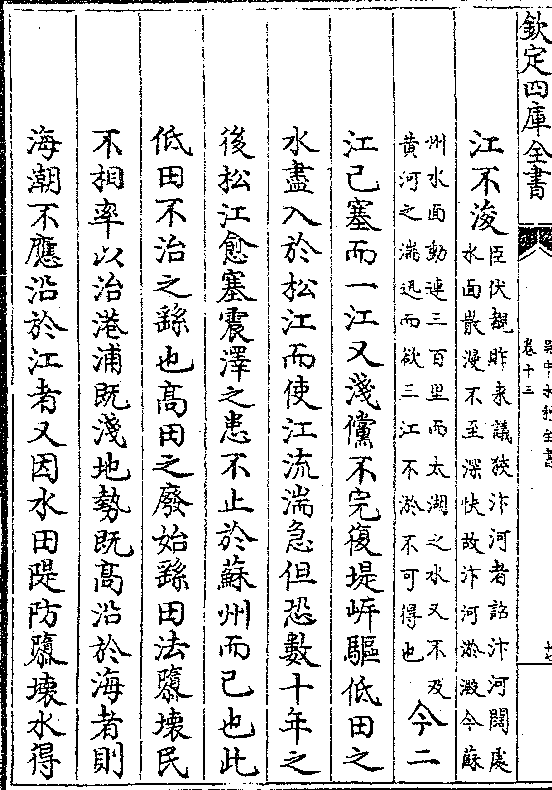 欽定四庫全書
吳中水利全書
卷十三
江不浚臣伏覩昨來議狹汴河者詔汴河闊處
水面散漫不至深快故汴河淤澱今蘇
州水面動連三百里而太湖之水又不及
黄河之湍迅而欲三江不淤不可得也今二
江已塞而一江又淺儻不完復堤岸驅低田之
水盡入於松江而使江流湍急但恐數十年之
後松江愈塞震澤之患不止於蘇州而已也此
低田不治之繇也髙田之廢始繇田法隳壊民
不相率以治港浦既淺地勢既髙沿於海者則
海潮不應沿於江者又因水田隄防隳壊水得